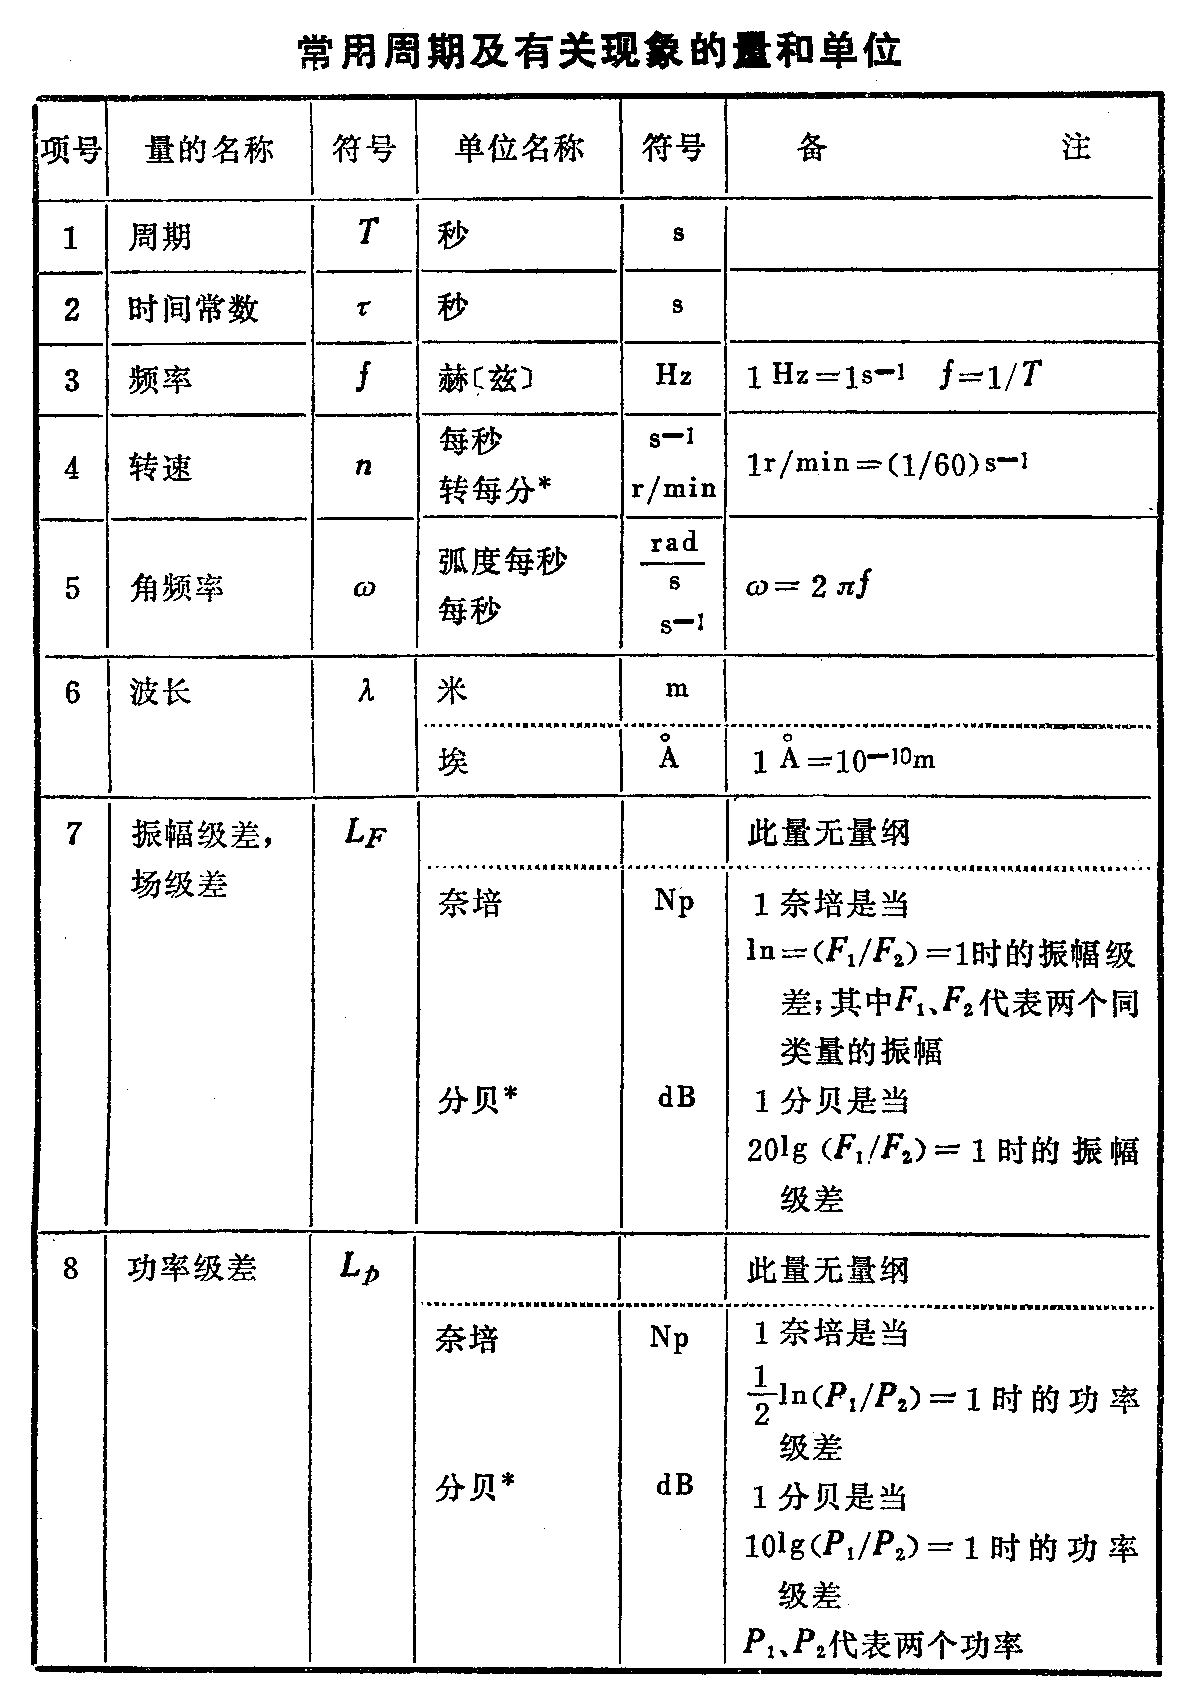 常用周期及有关现象的量和单位
项号 量的名称 符号 单位名称 符号 备 注
1 周期 T 秒 s
2 时间常数 τ 秒 s
3 频率 f 赫〔兹〕 Hz 1 Hz=1s−1 f=1/T
4 转速 n 每秒 s−1 1r/min=(1/60)s−1
转每分* r/min
5 角频率 ω 弧度每秒 rad/s ω=2πf
每秒 s−1
6 波长 λ 米 m
埃 Å 1 Å=10−10m
7 振幅级差， LF 此量无量纲
场级差
奈培 Np 1奈培是当
ln=(F1/F2)=1时的振幅级
差；其中F1、F2代表两个同
类量的振幅
分贝* dB 1分贝是当
20lg (F1/F2)=1时的振幅
级差
8 功率级差 Lp 此量无量纲
奈培 Np 1奈培是当
1/2 ln(P1/P2)=1时的功率
级差
分贝* dB 1分贝是当
10lg(P1/P2)=1时的功率
级差
P1、P2代表两个功率